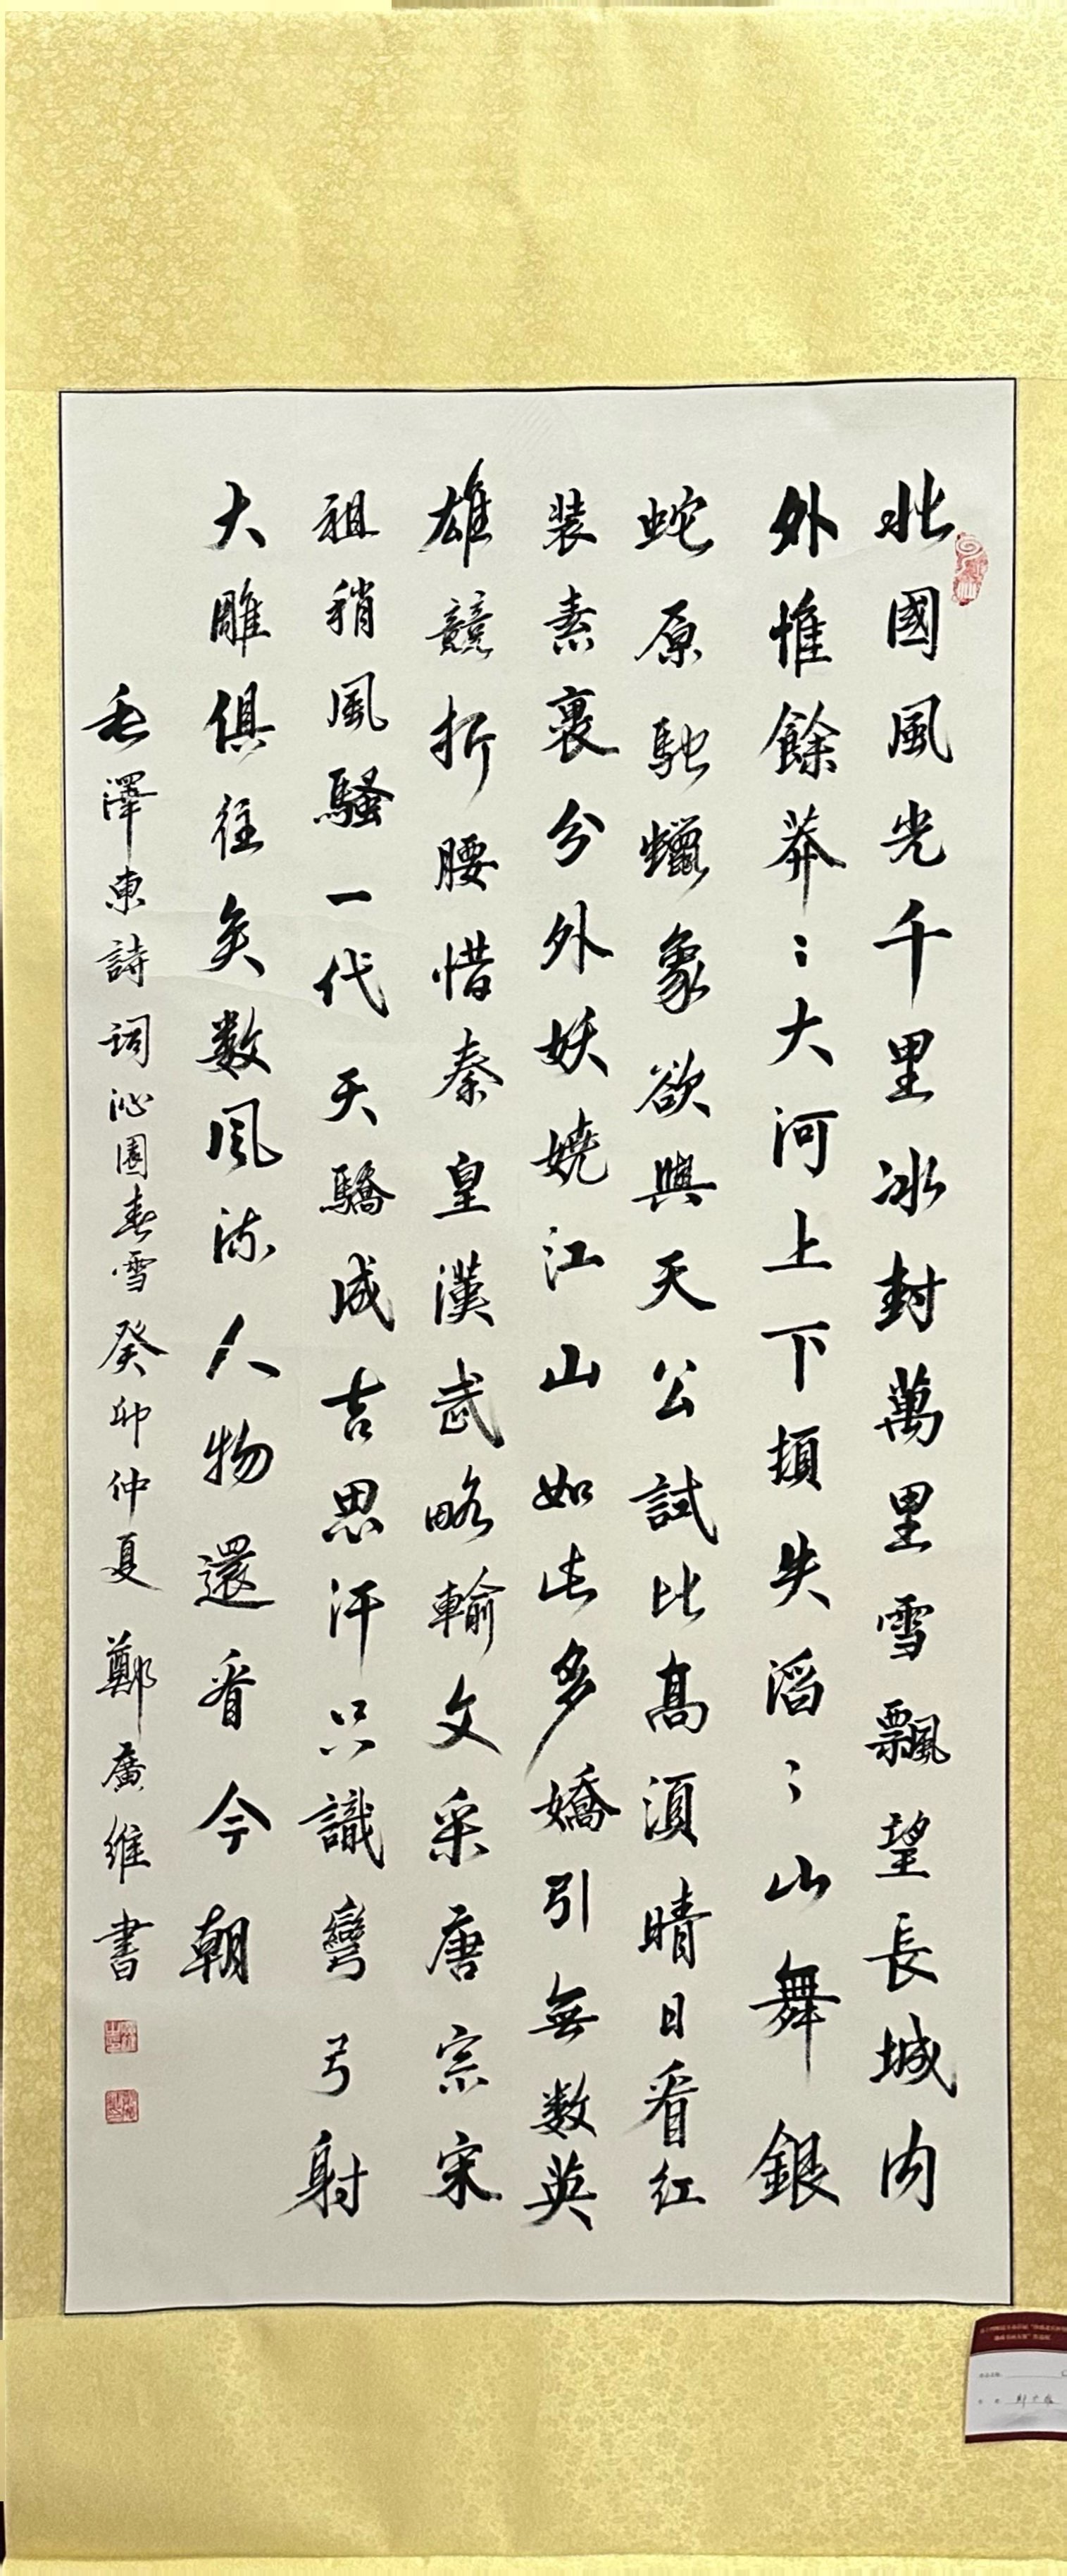 北國風光千里冰封萬里雪飄望長城内
外惟餘莽〻大河上下頓失滔〻山舞銀
蛇原馳蠟象欲與天公試比高須晴日看红
装素裹分外妖娆江山如此多嬌引無数英
雄競折腰惜秦皇漢武略輸文采唐宗宋
祖稍風騷一代天驕成吉思汗只識彎弓射
大雕俱往矣数風流人物還看今朝
毛澤東詩詞沁園春雪癸卯仲夏 鄭廣維書